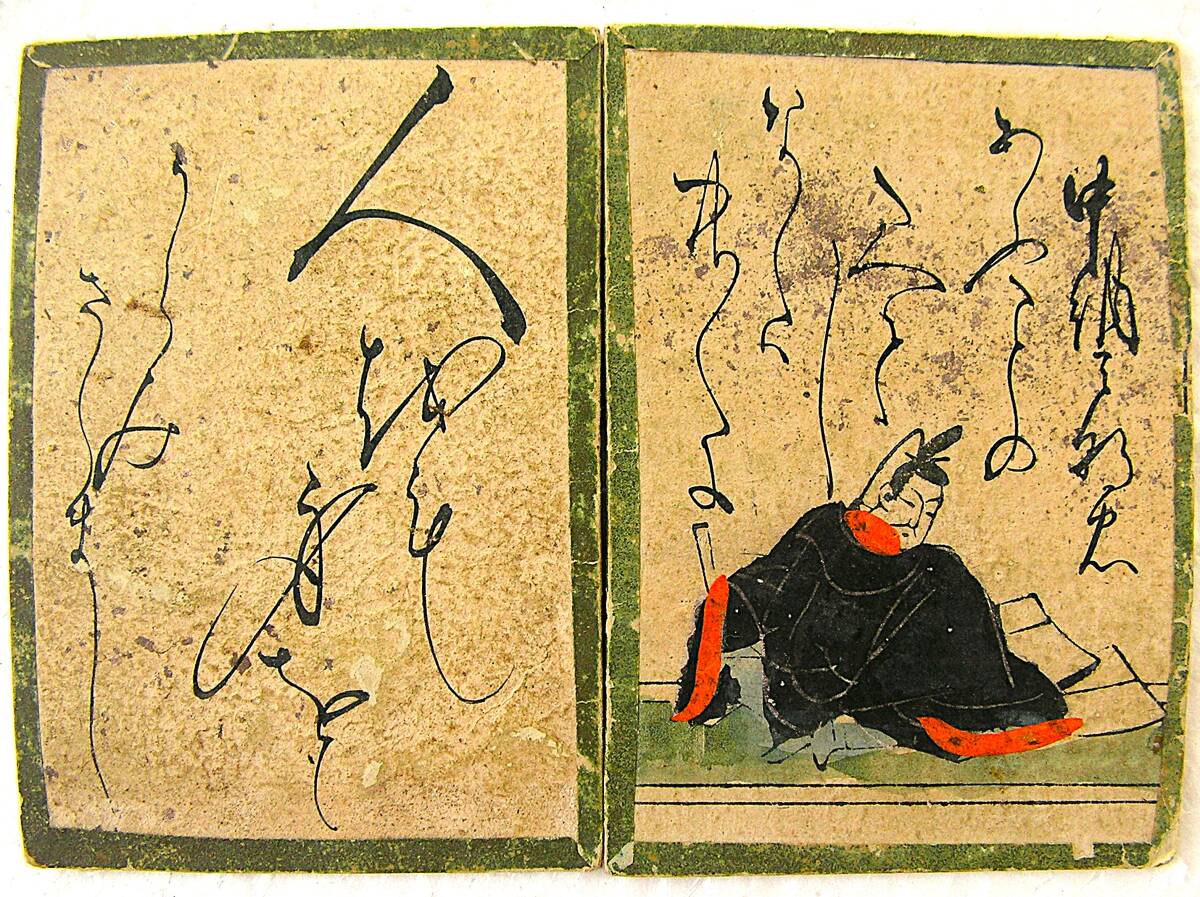 中納言朝忠
あふことの
たえて
し
なくは
中〱に
人をも
身をも
うらみ
さらまし